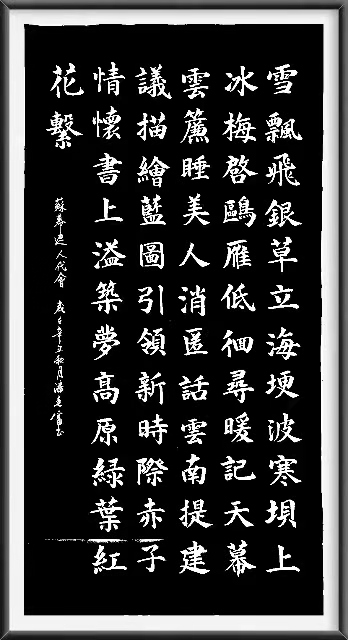 雪飄飛銀草立海埂波寒垻上
冰梅啓鷗雁低徊尋暖記天幕
雲簾睡美人消匿話雲南提建
議描繪藍圖引領新時際赤子
情懷書上溢築夢高原緑葉紅
花繫
人代會 辛丑 月